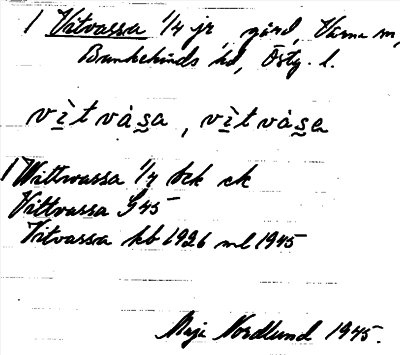 1 Vitvassa 1/4 jr gård, Värna sn,
Bankekinds hd, Östg. l.
vìtvàsa, vìtvàsa
1 Wittwassa 1/4 sck ck
Vittvassa J 45
Vitvassa kb 1926 ml 1945
Maja Nordlund 1945.